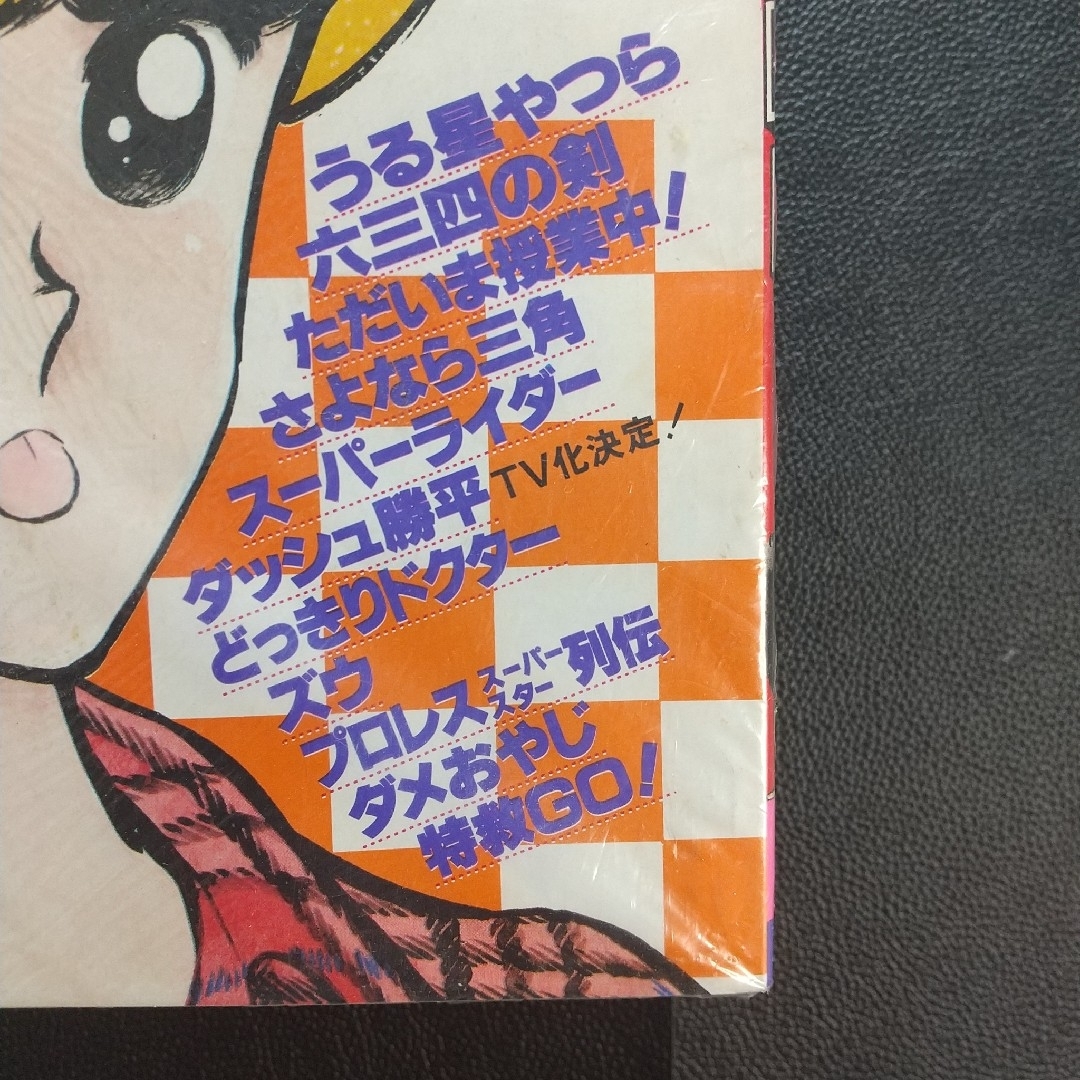 うる星やつら
六三四の剣
ただいま授業中!
さよなら三角
スーパーライダー
ダッシュ勝平 TV化決定!
どっきりドクター
ズウ
プロレススーパースター列伝
ダメおやじ
特救GO!